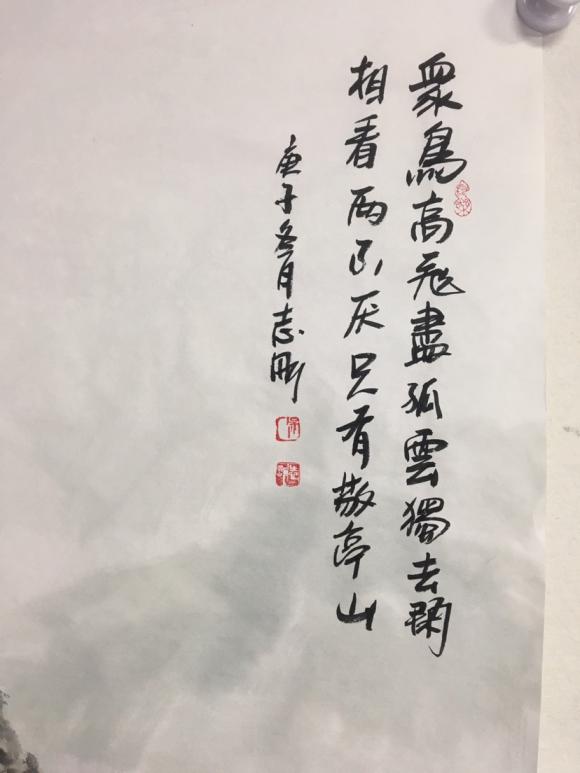 衆鳥高飛盡孤雲獨去閑
相看兩不厌只有敬亭山
庚子冬月志刚